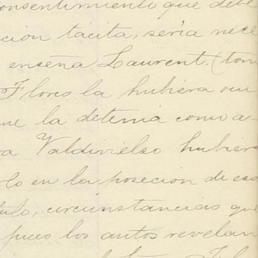 onsentimiento que debe
ción tacita, sería nece
enseña Laurent. (tom
Flores la hubiera
ue la detenia como a
a Valdivielso hubier
lo en la posecion de es
tulo, circunstancias que
pues los autos revelan